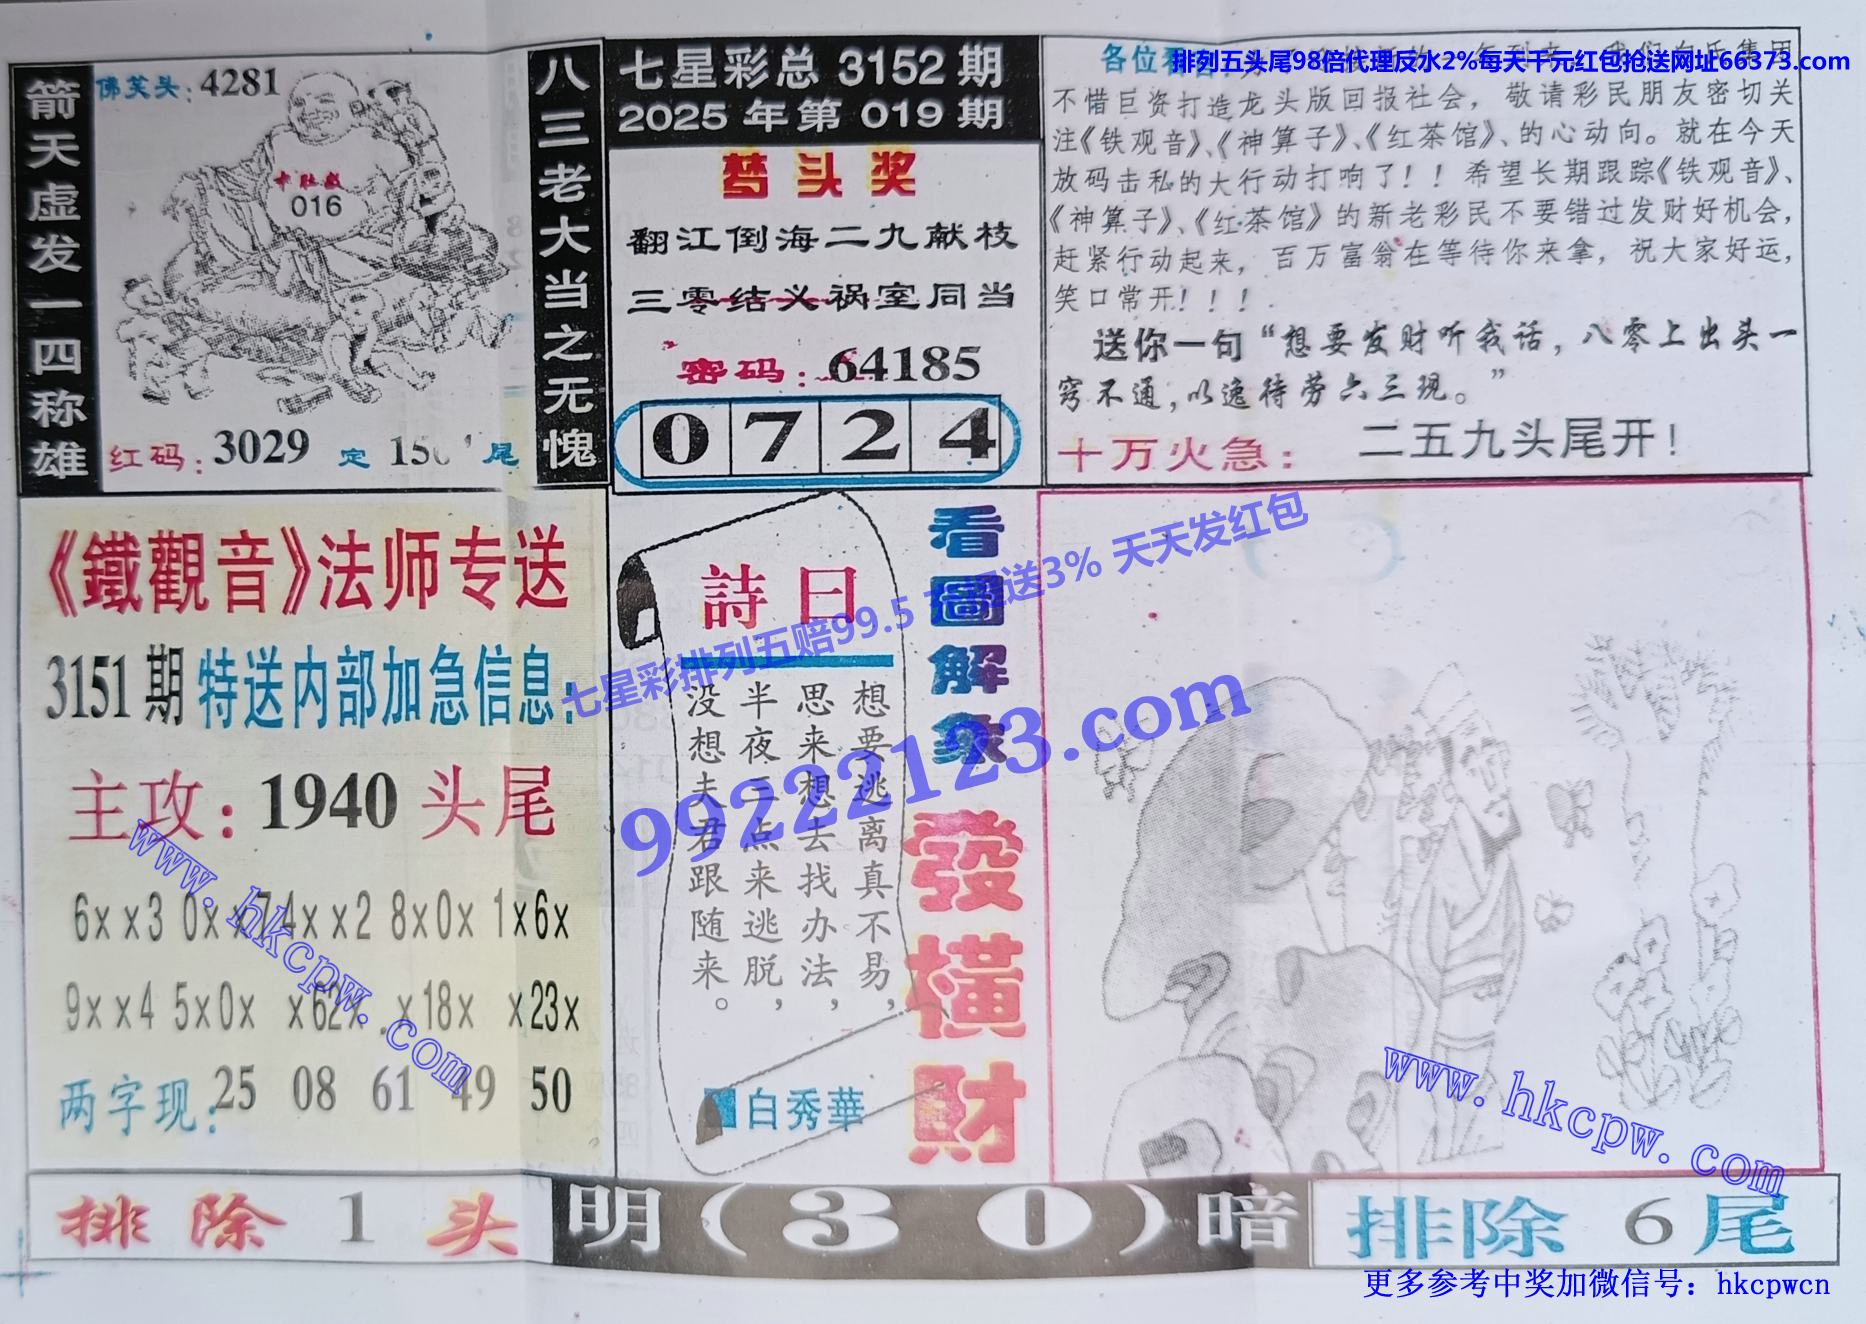 排列五头尾98倍代理反水2%每天千元红包抢送网址66373.com
箭天虚发一四称雄
佛笑头：4281
016
红码：3029 定 150 尾
八三老大当之无愧
七星彩总 3152 期
2025 年第 019 期
梦头奖
翻江倒海二九献枝
三零结义祸室同当
密码：64185
0 7 2 4
各位
不惜巨资打造龙头版回报社会，敬请彩民朋友密切关
注《铁观音》、《神算子》、《红茶馆》、的心动向。就在今天
放码击私的大行动打响了！！希望长期跟踪《铁观音》、
《神算子》、《红茶馆》的新老彩民不要错过发财好机会，
赶紧行动起来，百万富翁在等待你来拿，祝大家好运，
笑口常开！！！
送你一句“想要发财听我话，八零上出头一
窍不通，以逸待劳六三现。”
十万火急：二五九头尾开！
《鐵觀音》法师专送
3151期 特送内部加急信息：
主攻：1940 头尾
6××3 0××7 4××2 8×0× 1×6×
9××4 5×0× ×62× ×18× ×23×
两字现：25 08 61 49 50
詩曰
想要逃离真不易，
思来想去找办法，
半夜三点来逃脱，
没想夫君跟随来。
白秀華
看圖解象
發橫財
七星彩排列五赔99.5 送3% 天天发红包
99222123.com
www.hkcpw.com
www.hkcpw.com
排除 1 头
明(30)暗
排除 6 尾
更多参考中奖加微信号：hkcpwcn